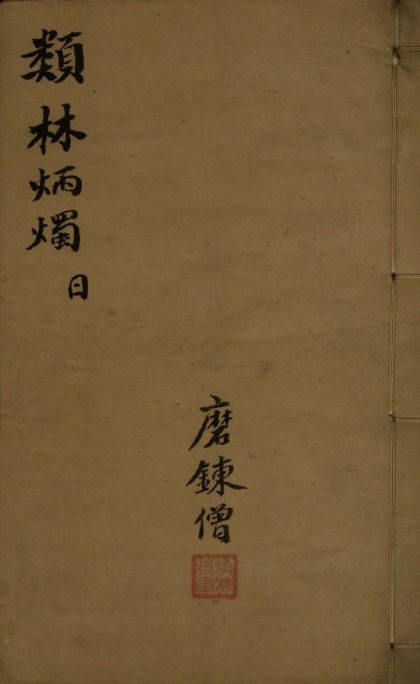 類林炳燭
日
磨鍊僧